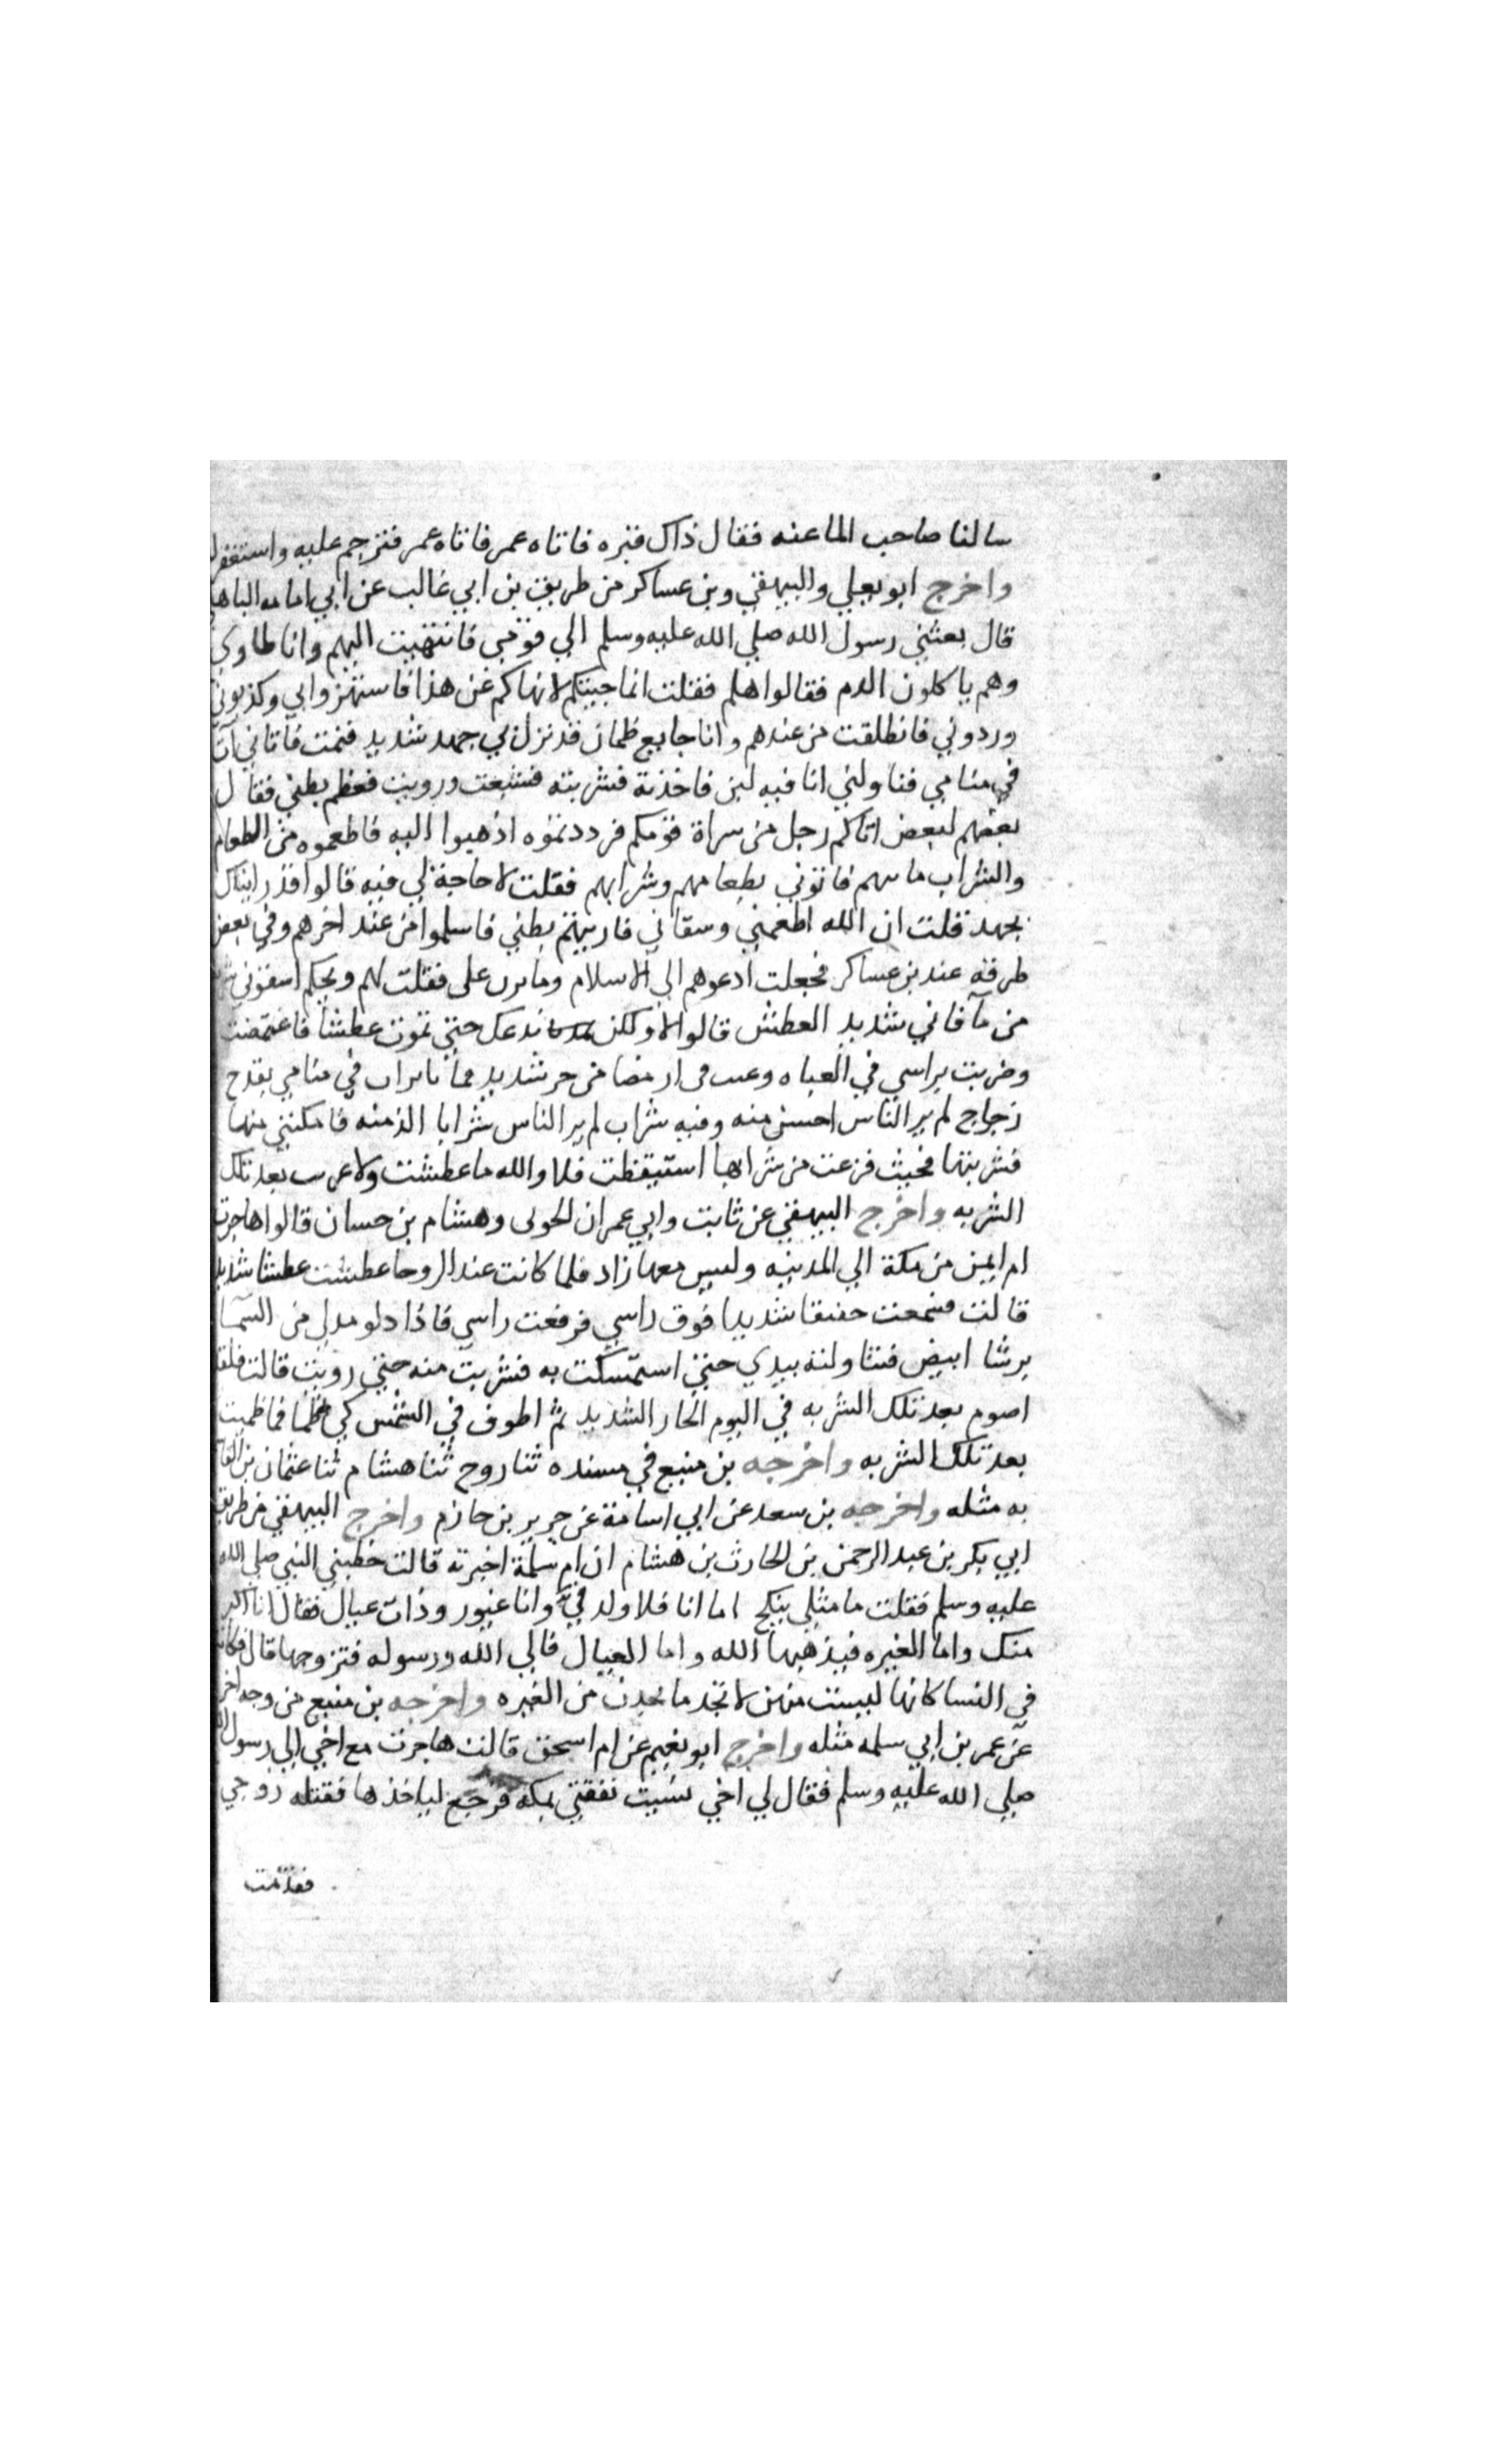 سالنا صاحب الما عنه فقال ذاك قبره فاتاه عمر فاتاه عمر فترحم عليه واستغفر
واخرج ابو يعلي والبيهقي وبن عساكر من طريق بن ابي غالب عن ابي امامه الباهلي
قال بعثني رسول الله صلي الله عليه وسلم الي قومي فانتهيت اليهم وانا طاوي
وهم ياكلون الدم فقالوا هلم فقلت انما جيتكم لانهاكم عن هذا فاستهزوا بي وكذبوني
وردوني فانطلقت من عندهم وانا جايع ظمان قد نزل بي جهد شديد فنمت فاتاني آت
في منامي فناولني انا فيه لبن فاخذته فشربته فشبعت ورويت فعظم بطني فقال
بعضهم لبعض اتاكم رجل من سراة قومكم فرددتموه اذهبوا اليه فاطعموه من الطعام
والشراب ما فاتوني بطعامهم وشرابهم فقلت لا حاجة لي فيه قالوا قد رايناك
بجهد قلت ان الله اطعمني وسقاني فاريتهم بطني فاسلموا من عند اخرهم وفي بعض
طرقه عند بن عساكر فجعلت ادعوهم الي الاسلام علي فقلت لهم ويحكم اسقوني
من ما فاني شديد العطش قالوا لا ولكن ندعك حتي تموت عطشا فاغتممت
وضربت براسي في العباه من حر شديد في منامي بقدح
زجاج لم ير الناس احسن منه وفيه شراب لم ير الناس شرابا الذ منه فامكنني منها
فشربتها فحيث فرغت من شرابها استيقظت فلا والله ما عطشت ولا بعد تلك
الشربه واخرج البيهقي عن ثابت وابي عمران الجوني وهشام بن حسان قالوا هاجرت
ام ايمن من مكة الي المدينه وليس معها زاد فلما كانت عند الروحا عطشت عطشا شديد
قالت فسمعت حفيفا شديدا فوق راسي فرفعت راسي فاذا دلو مدلي من السما
برشا ابيض فتناولته بيدي حتي استمسكت به فشربت منه حتي رويت قالت فلقد
اصوم بعد تلك الشربه في اليوم الحار الشديد ثم اطوف في الشمس كي اظما فما ظميت
بعد تلك الشربه واخرجه بن منيع في مسنده ثنا روح ثنا هشام ثنا عثمان بن القا
به مثله واخرجه بن سعد عن ابي اسامة عن جرير بن حازم واخرج البيهقي من طريق
ابي بكر بن عبد الرحمن بن الحارث بن هشام ان ام سلمة اخبرته قالت خطبني النبي صلي الله
عليه وسلم فقلت ما مثلي ينكح اما انا فلا ولد في وانا غيور وذات عيال فقال انا اكبر
منك واما الغيره فيذهبها الله واما العيال فالي الله ورسوله فتزوجها قال فكانت
في النسا كانها ليست منهن لا تجد ما يجدن من الغيره واخرجه بن منيع من وجه اخر
عن عمر بن ابي سلمه مثله واخرج ابو نعيم عن ام اسحق قالت هاجرت مع اخي الي رسول الله
صلي الله عليه وسلم فقال لي اخي نسيت نفقتي بمكة فرجع لياخذها فقتله زوجي
فقدمت